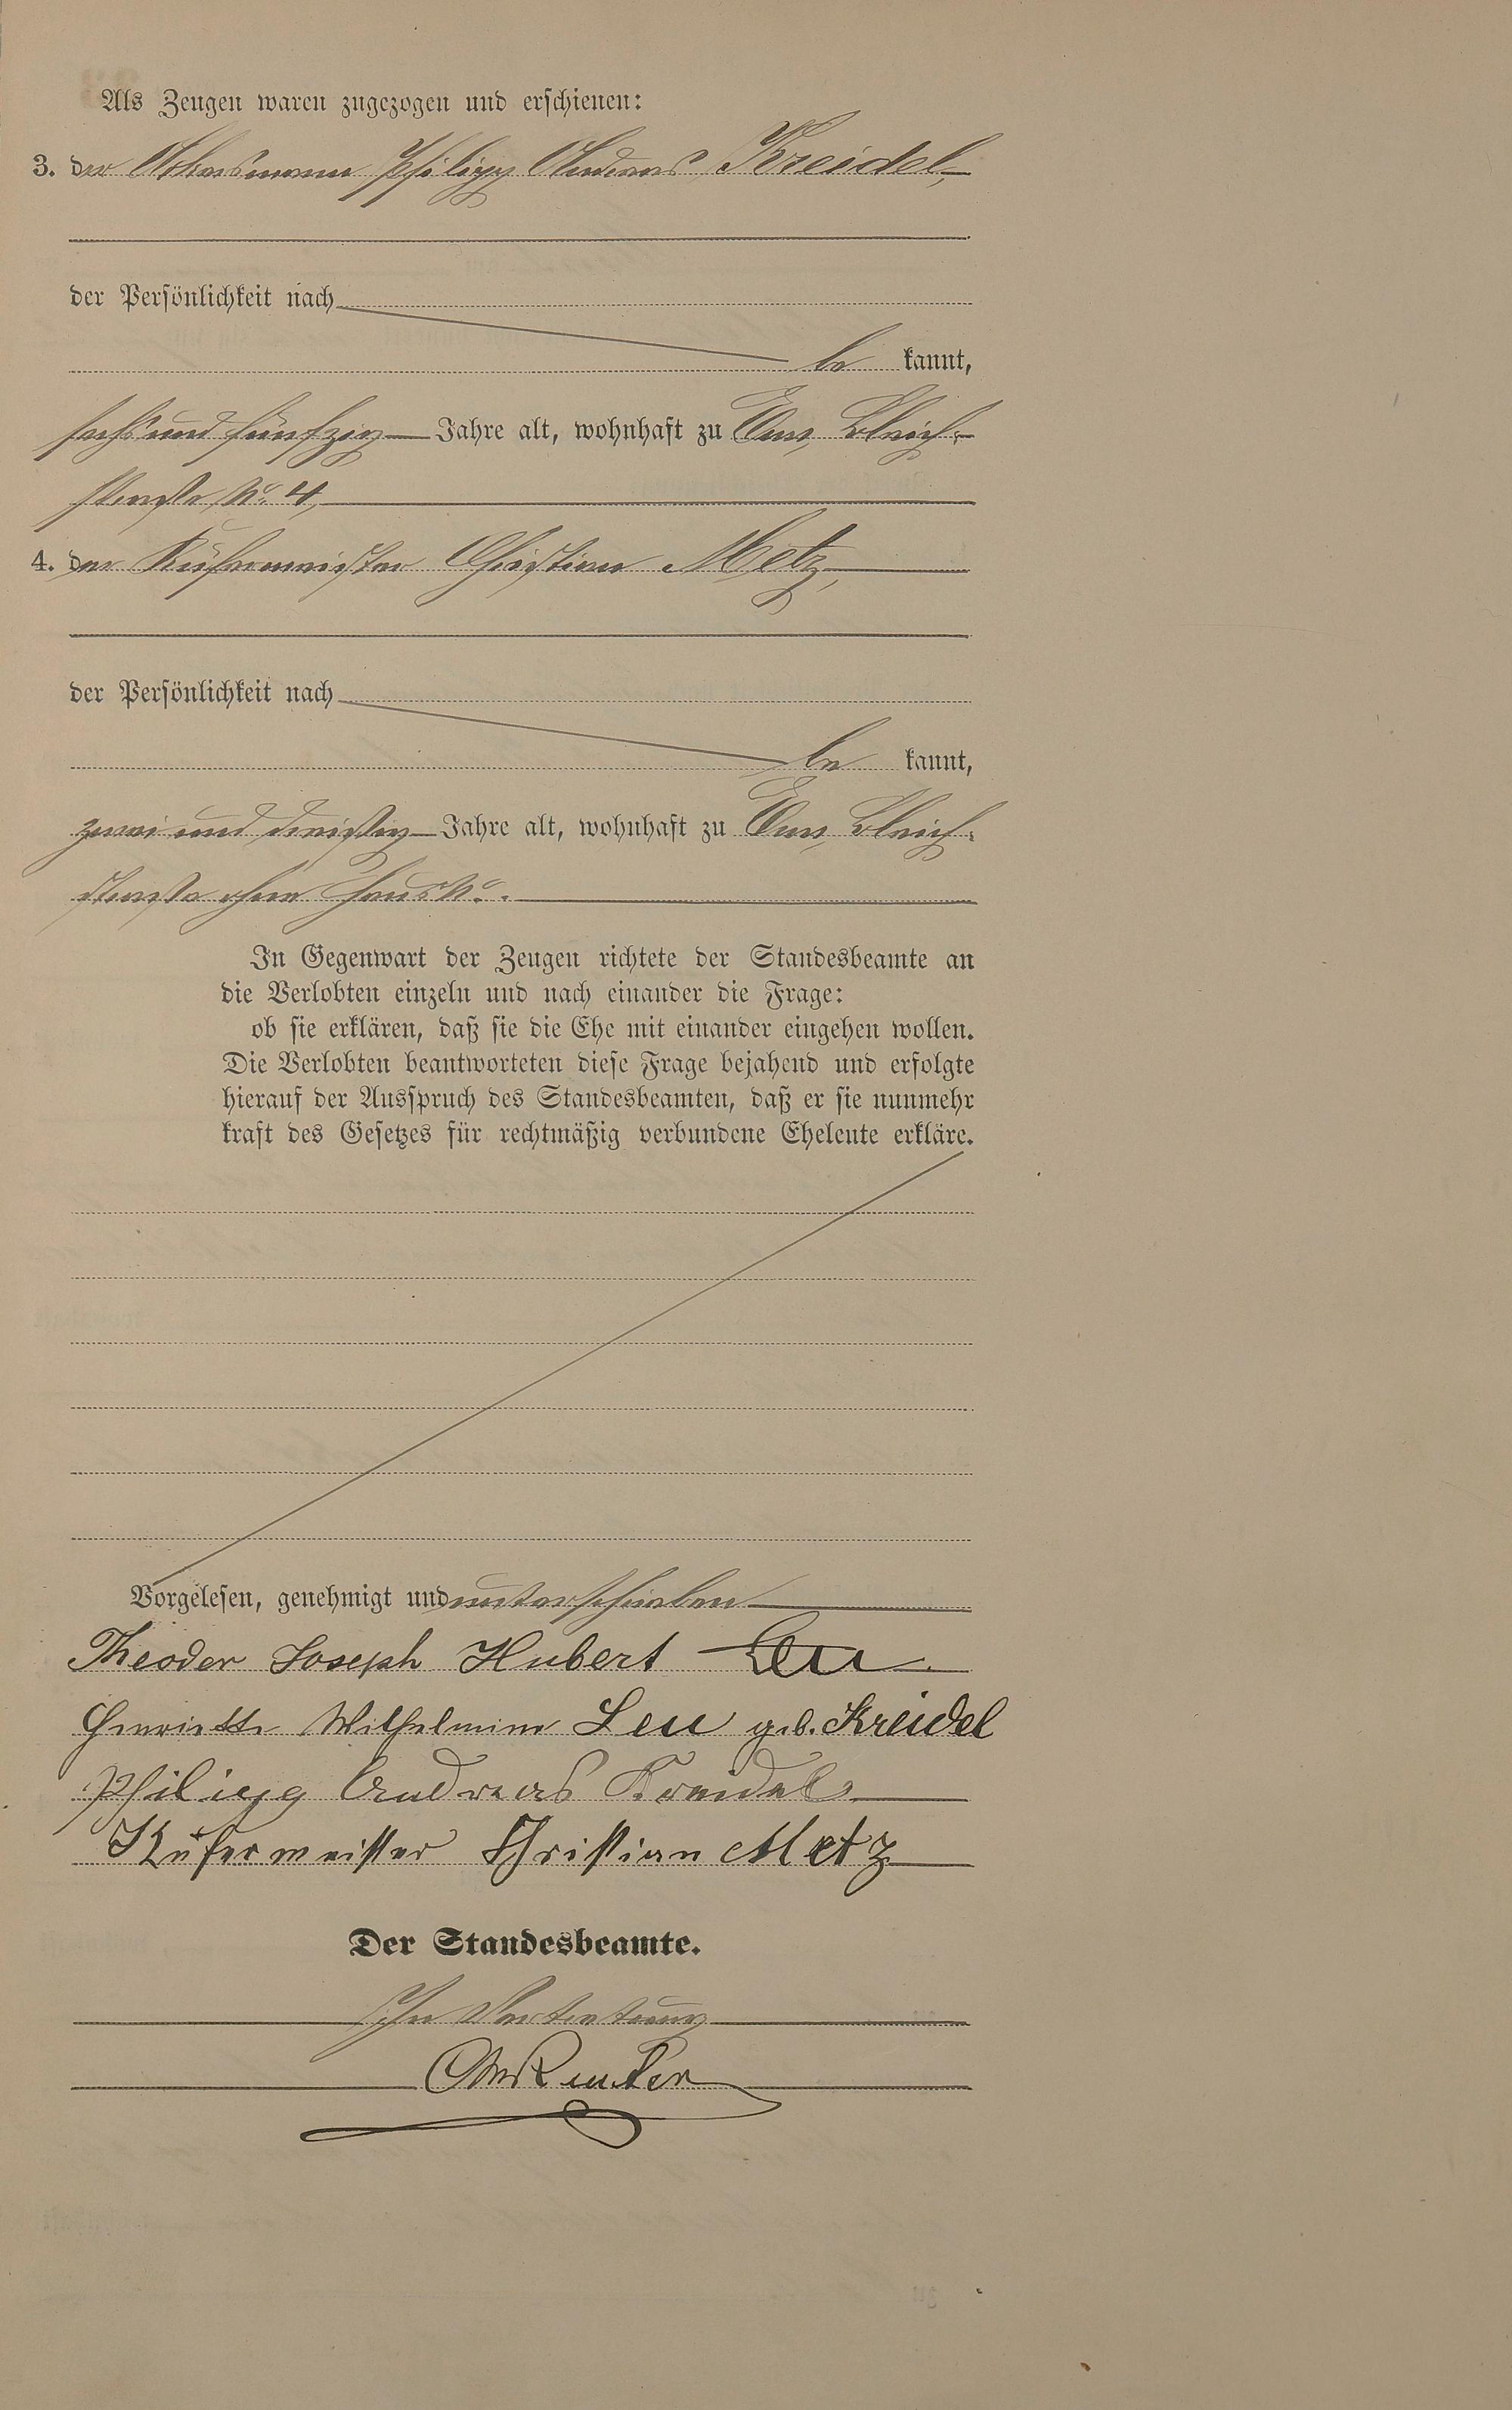 Als Zeugen waren zugezogen und erschienen:
3. der Ackersmann Philipp Andreas Kreidel,
der Persönlichkeit nach
be kannt,
sechs und fünfzig Jahre alt, wohnhaft zu Ems, Bleich-
straße, No. 4,
4. der Küfermeister Christian Metz,
der Persönlichkeit nach
be kannt,
zwei und dreißig Jahre alt, wohnhaft zu Ems, Bleich-
straße ohne Haus No.
In Gegenwart der Zeugen richtete der Standesbeamte an
die Verlobten einzeln und nach einander die Frage:
ob sie erklären, daß sie die Ehe mit einander eingehen wollen.
Die Verlobten beantworteten diese Frage bejahend und erfolgte
hierauf der Ausspruch des Standesbeamten, daß er sie nunmehr
kraft des Gesetzes für rechtmäßig verbundene Eheleute erkläre.
Vorgelesen, genehmigt und unterschrieben
Theodor Joseph Hubert Leu
Henriette Wilhelmine Leu geb. Kreidel
Philipp Andreas Kreidel
Küfermeister Christian Metz
Der Standesbeamte.
In Vertretung